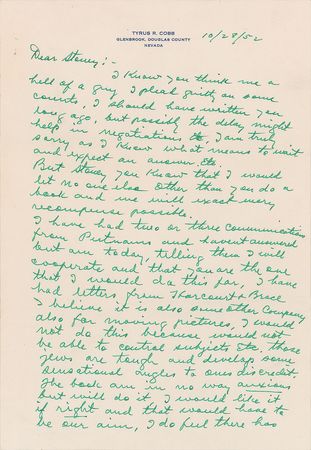 TYRUS R. COBB
GLENBROOK, DOUGLAS COUNTY
NEVADA
10/28/52
Dear Stoney:-
I know you think me a
hell of a guy I plead guilty on some
counts, I should have written you
long ago, but possibly the delay might
help in negotiations etc, I am truly
sorry as I know what means to wait
and expect an answer. Etc.
But Stoney you know that I would
let no one else other than you do a
book and we will exact every
recompense possible.
I have had two or three communications
from Putnams and havent answered
but am today, telling them I will
cooperate and that you are the one
that I would do this for, I have
had letters from Harcourt & Brace
I believe it is also some other Company
also for moving pictures, I would
not do this because would not
be able to control subjects etc those
jews are tough and develop some
sensational angles to ones discredit
The book am in no way anxious
but will do it I would like it
if right and that would have to
be our aim, I do feel there has